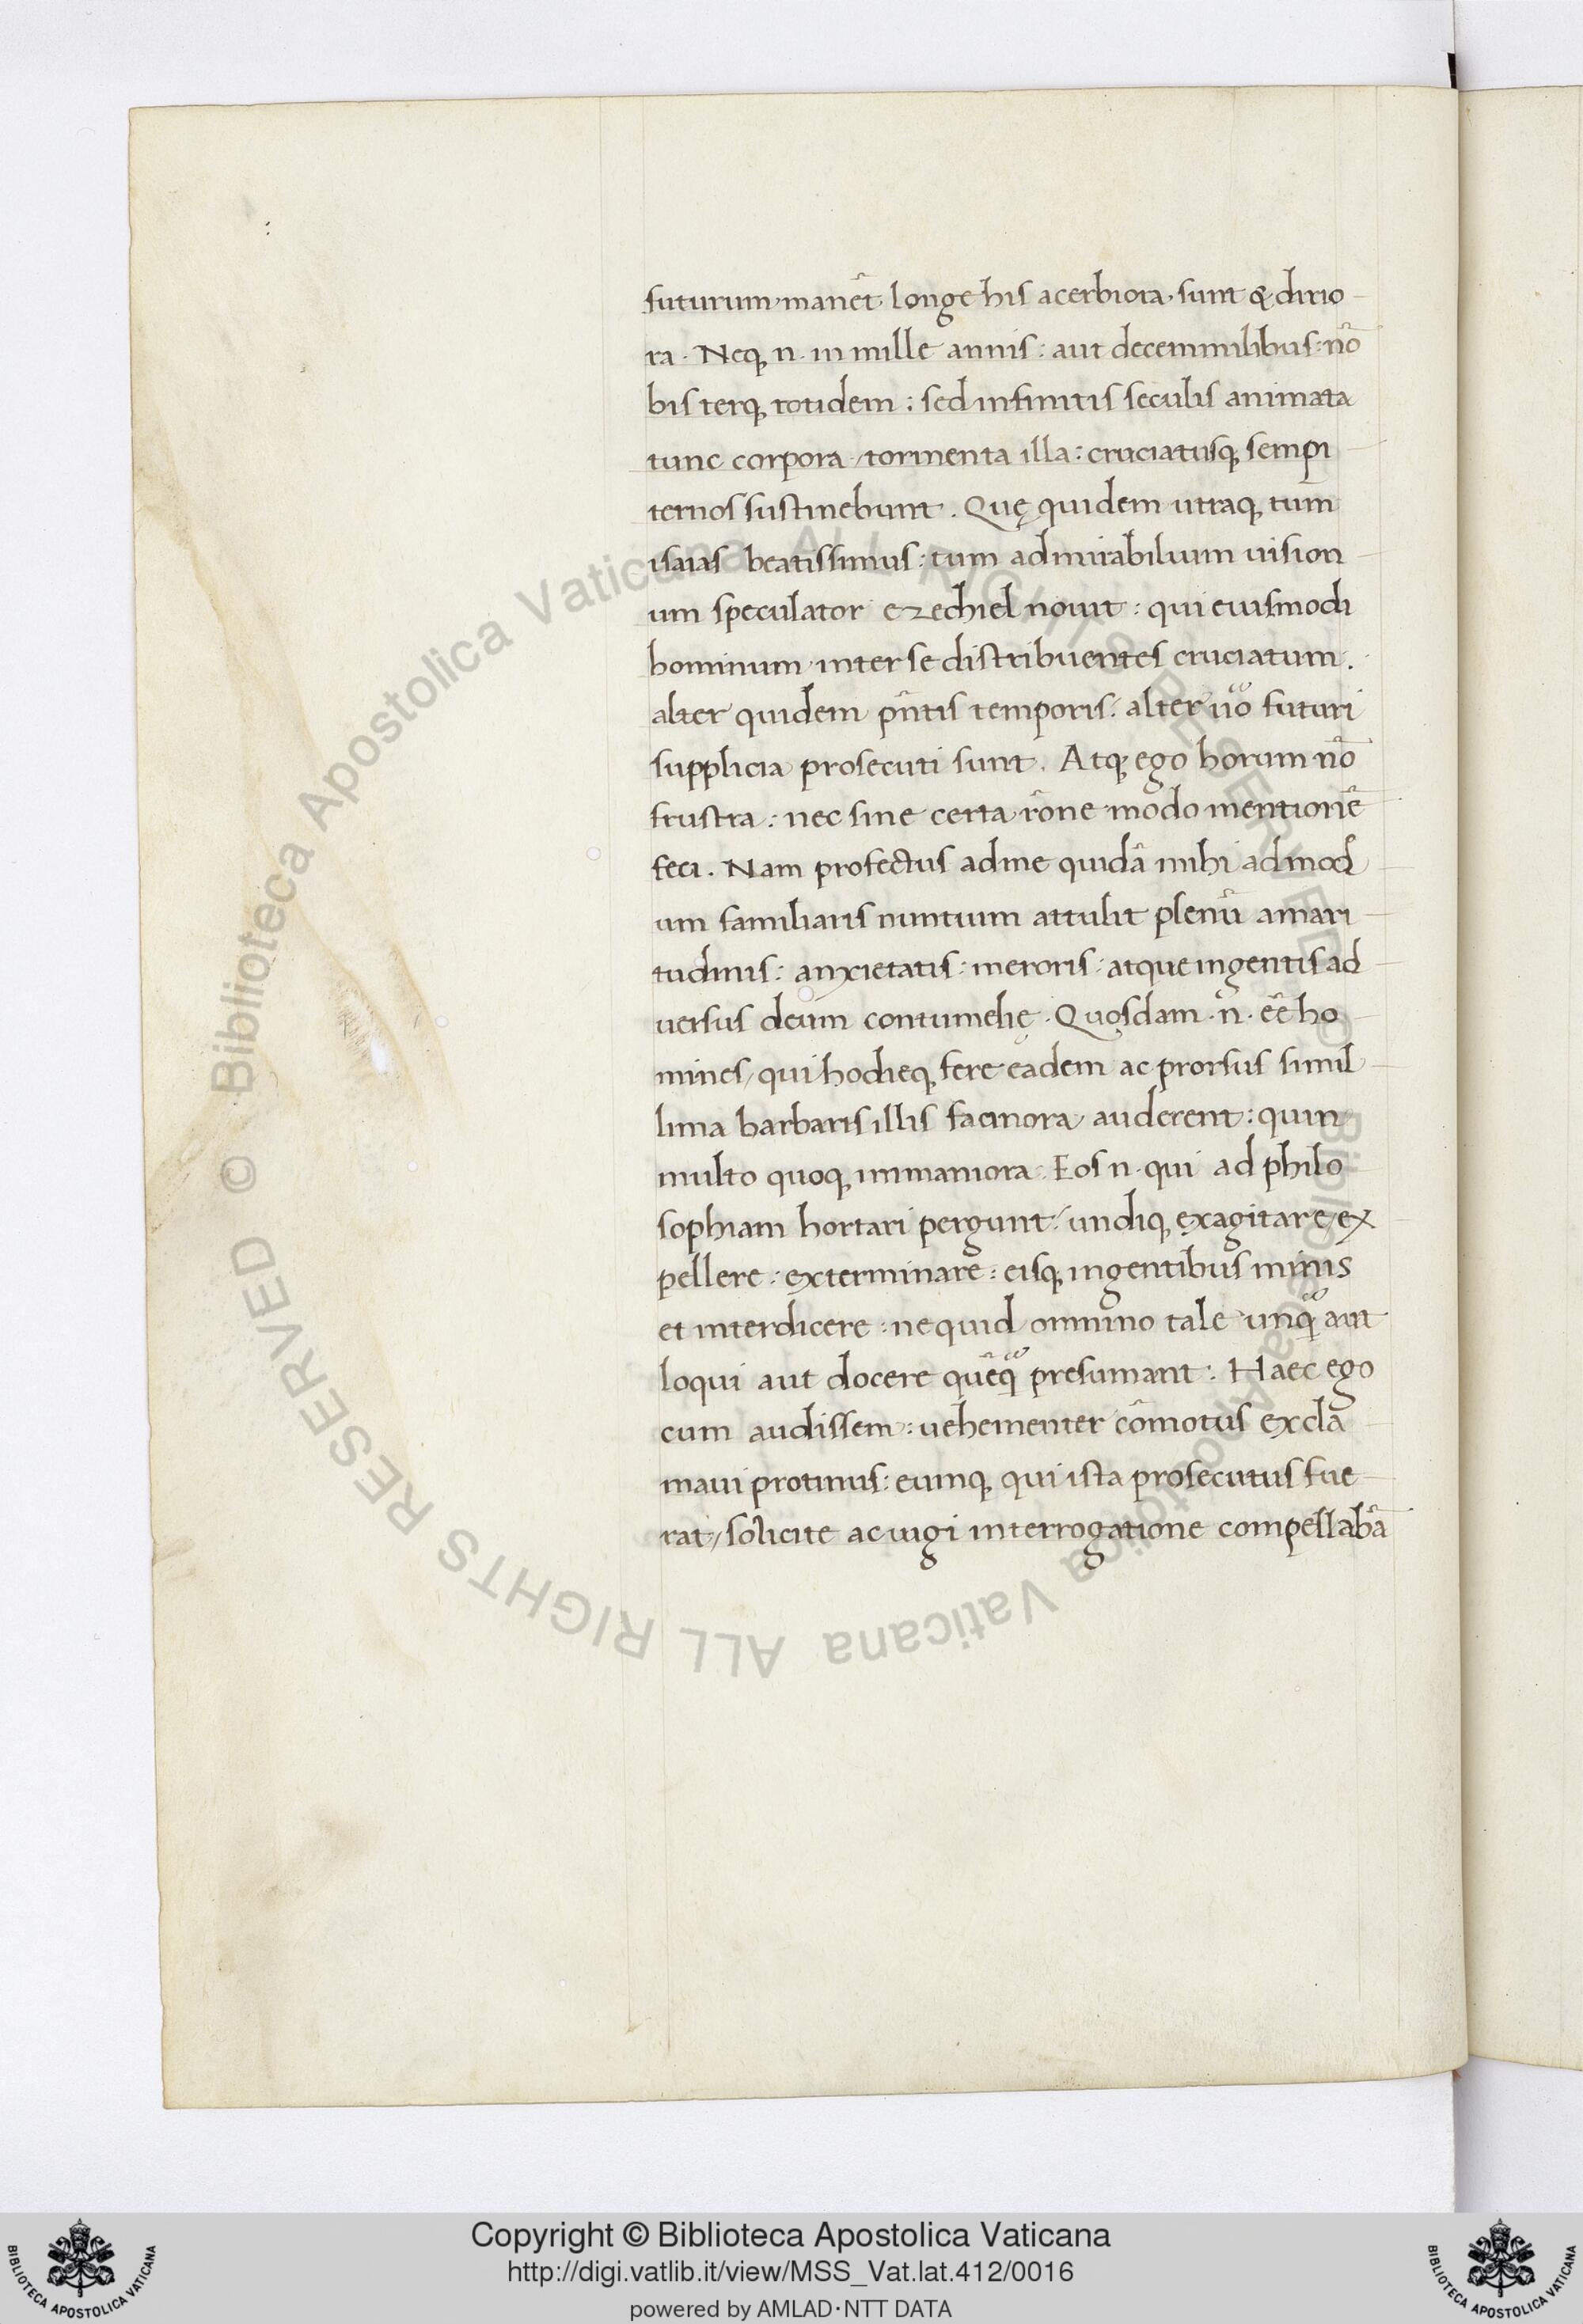 futurum, manēt longe his acerbiora, sunt & dirio
ra. Neq; n. in mille annis: aut decemmilibus: nō
bis terq; totidem: sed infinitis seculis animata
tunc corpora, tormenta illa: cruciatusq; sempi
ternos sustinebunt. Quę quidem utraq; tum
isaias beatissimus: tum admirabilium uision
um speculator ezechiel nouit: qui eiusmodi
hominum inter se distribuentes cruciatum.
alter quidem pn̄tis temporis: alter uō futuri
supplicia prosecuti sunt. Atq; ego horum nō
frustra: nec sine certa rōne modo mentionē
feci. Nam profectus ad me quidā mihi admod
um familiaris nuntium attulit plenū amari
tudinis: anxietatis: meroris: atque ingentis ad
uersus deum contumelię. Quosdam. n. eē ho
mines, qui hodieq; fere eadem ac prorsus simil
lima barbaris illis facinora auderent: quin
multo quoq; immaniora. Eos n. qui ad philo
sophiam hortari pergunt, undiq; exagitare, ex
pellere: exterminare: eisq; ingentibus minis
et interdicere: nequid omnino tale unq̄ aut
loqui aut docere quēq̄ presumant: Haec ego
cum audissem: uehementer cōmotus excla
maui protinus: eumq; qui ista prosecutus fue
rat, solicite ac iugi interrogatione compellabā
© Biblioteca Apostolica Vaticana ALL RIGHTS RESERVED
© Biblioteca Apostolica Vaticana ALL RIGHTS RESERVED
Copyright © Biblioteca Apostolica Vaticana
http://digi.vatlib.it/view/MSS_Vat.lat.412/0016
powered by AMLAD·NTT DATA
BIBLIOTECA APOSTOLICA VATICANA
BIBLIOTECA APOSTOLICA VATICANA